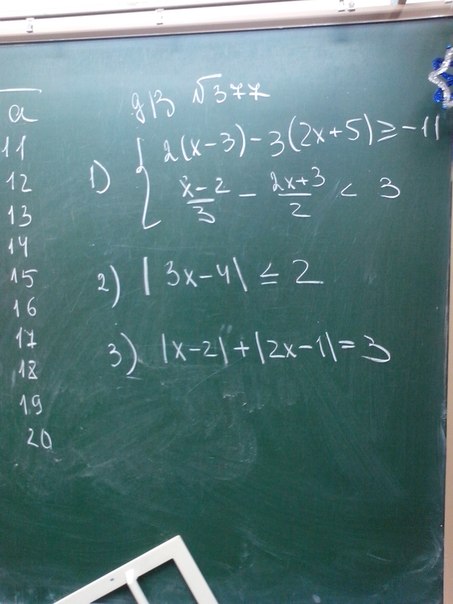 a
11
12
13
14
15
16
17
18
19
20
д/з √377
1) { 2(x-3)-3(2x+5)≥-11
x-2/3 - 2x+3/2 < 3
2) |3x-4| ≤ 2
3) |x-2|+|2x-1|=3